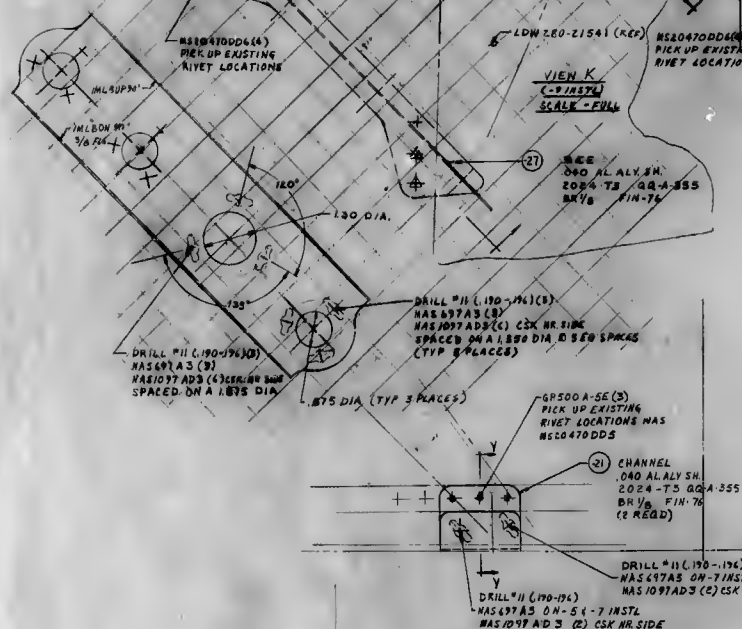 MS20470DD6(4)
PICK UP EXISTING
RIVET LOCATIONS
LDW 280-21541 (REF)
MS20470DD6(4
PICK UP EXISTI
RIVET LOCATIO
VIEW K
(-9 INSTL)
SCALE - FULL
IMLBUP 90°
IMLBDN 90°
3/8 FLG
-27
.040 AL. ALY. SH.
2024-T3 QQ-A-355
BR 1/8 FIN-76
120°
1.30 DIA.
135°
DRILL #11 (.190-.196)(3)
NAS697A3 (3)
NAS1097AD3 (6) CSK NR. SIDE
SPACED ON A 1.250 DIA. & 3 EQ SPACES
(TYP 3 PLACES)
DRILL #11 (.190-.196)(3)
NAS697A3 (3)
NAS1097AD3 (6) CSK. NR SIDE
SPACED ON A 1.875 DIA
.875 DIA (TYP 3 PLACES)
GP500A-5E (3)
PICK UP EXISTING
RIVET LOCATIONS WAS
MS20470DD5
Y
-21
CHANNEL
.040 AL. ALY SH.
2024-T3 QQ-A-355
BR 1/8 FIN-76
(2 REQD)
Y
DRILL #11 (.190-.196)
NAS697A3 ON -7 INST
NAS1097AD3 (2) CSK
DRILL #11 (.190-.196)
NAS697A3 ON -5 & -7 INSTL
NAS1097AD3 (2) CSK NR. SIDE